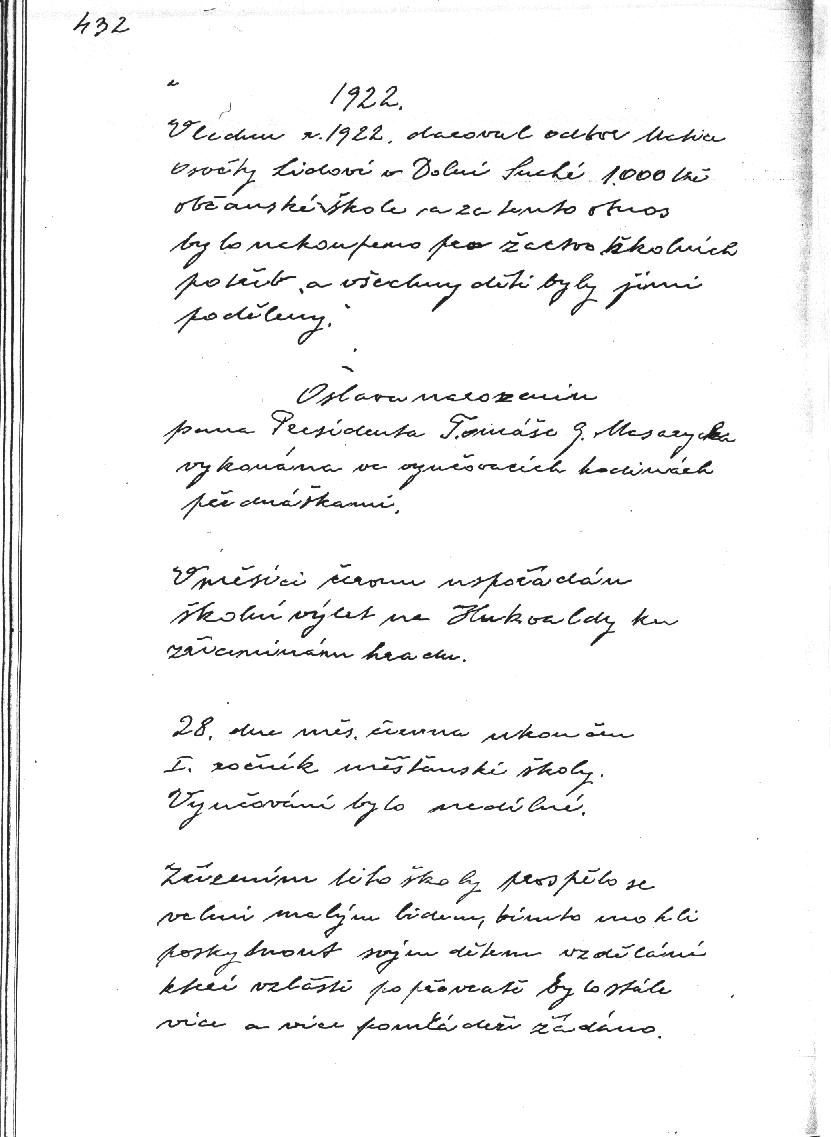 432
1922.
V lednu r. 1922. daroval odbor Matice
Osvěty Lidové v Dolní Suché 1.000 Kč
občanské škole a za tento obnos
bylo nakoupeno pro žactvo školních
potřeb, a všechny děti byly jimi
poděleny.
Oslava narozenin
pana Presidenta Tomáše G. Masaryka
vykonána ve vyučovacích hodinách
přednáškami.
V měsíci červnu uspořádán
školní výlet na Hukvaldy ku
hradu.
28. dne měs. června ukončen
I. ročník měšťanské školy.
Vyučování bylo nedílné.
Zřízením této školy prospělo se
velmi malým lidem, kteří mohli
poskytnout svým dětem vzdělání
které vzláště po převratě bylo stále
více a více pomládeži žádáno.